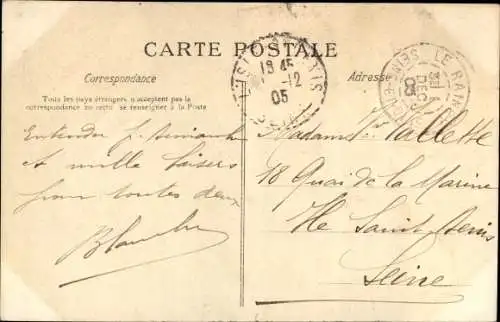 CARTE POSTALE
Correspondance
Adresse
Tous les pays étrangers n'acceptent pas la
correspondance au recto se renseigner à la Poste
18 45
12
05
LE RAIN
DEC
05
Entendu p. dimanche
et mille baisers
pour toutes deux
Blanche
Madame Vve Vallette
18 Quai de la Marine
Ile Saint-Denis
Seine